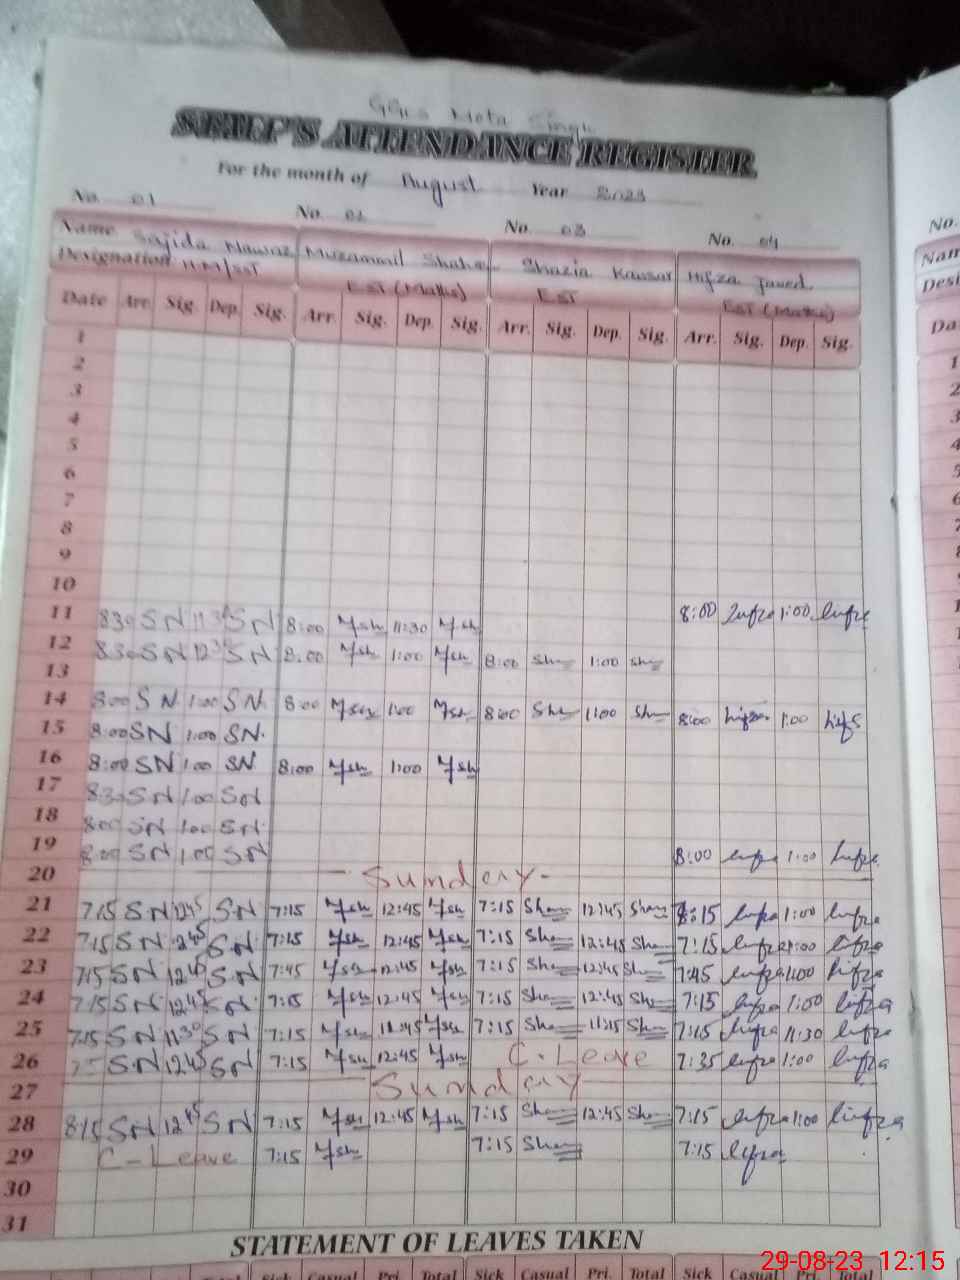 GGHS Mota Singh
STAFF'S ATTENDANCE REGISTER
For the month of August Year 2023
No. 01 No. 02 No. 03 No. 04 No.
Name Sajida Nawaz Muzammil Shaha Shazia Kausar Hifza Javed Nam
Designation H.M/SST EST (Maths) EST EST (Maths) Desi
Date Arr. Sig. Dep. Sig. Arr. Sig. Dep. Sig. Arr. Sig. Dep. Sig. Arr. Sig. Dep. Sig. Da
1
2
3
4
5
6
7
8
9
10
11 830 SN 1130 SN 8:00 Msh 11:30 Msh 8:00 hifza 1:00 hifza
12 830 SN 1230 SN 8:00 Msh 1:00 Msh 8:00 Sha 1:00 Sha
13
14 8:00 SN 1:00 SN 8:00 Msh 1:00 Msh 8:00 Sha 1:00 Sha 8:00 hifza 1:00 hifz
15 8:00 SN 1:00 SN.
16 8:00 SN 1:00 SN 8:00 Msh 1:00 Msh
17 830 SN 1:00 SN
18 800 SN 1:00 SN.
19 8:00 SN 1:00 SN 8:00 hifza 1:00 hifza
20 Sunday
21 7:15 SN 1245 SN 7:15 Msh 12:45 Msh 7:15 Sha 12:45 Sha 8:15 hifza 1:00 hifza
22 7:15 SN 1245 SN 7:15 Msh 12:45 Msh 7:15 Sha 12:45 Sha 7:15 hifza 1:00 hifza
23 7:15 SN 1245 SN 7:45 Msh 12:45 Msh 7:15 Sha 12:45 Sha 7:45 hifza 1:00 hifza
24 7:15 SN 1245 SN 7:15 Msh 12:45 Msh 7:15 Sha 12:45 Sha 7:15 hifza 1:00 hifza
25 7:15 SN 1130 SN 7:15 Msh 11:45 Msh 7:15 Sha 11:15 Sha 7:15 hifza 11:30 hifza
26 SN 1245 SN 7:15 Msh 12:45 Msh C-Leave 7:35 hifza 1:00 hifza
27 Sunday
28 8:15 SN 1245 SN 7:15 Msh 12:45 Msh 7:15 Sha 12:45 Sha 7:15 hifza 1:00 hifza
29 C-Leave 7:15 Msh 7:15 Sha 7:15 hifza
30
31
STATEMENT OF LEAVES TAKEN
Total Sick Casual Pri. Total Sick Casual Pri. Total Sick Casual Pri. Total
29-08-23 12:15